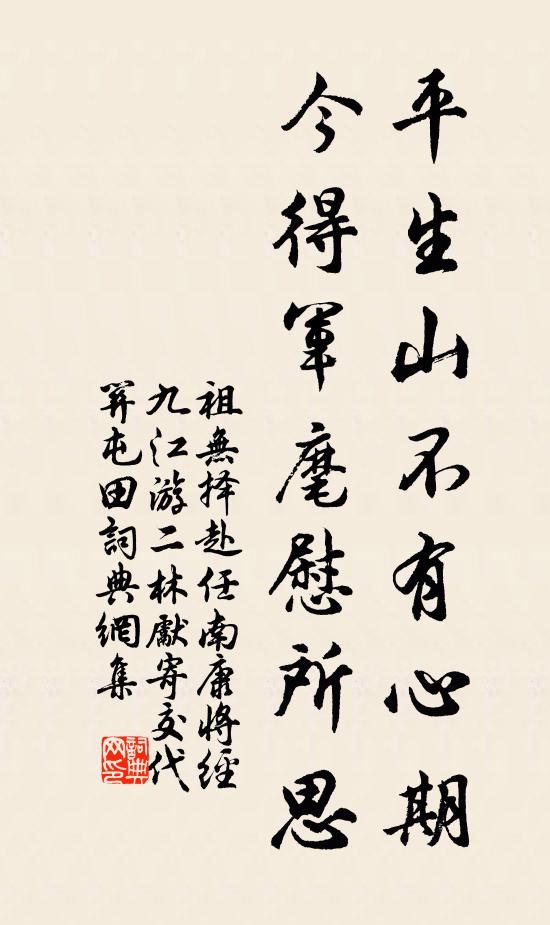 平生山不有心期
今得軍麾慰所思
祖無择赴任南康將經
九江游二林獻寄交代
笄屯田詞典網集
詞典
网印